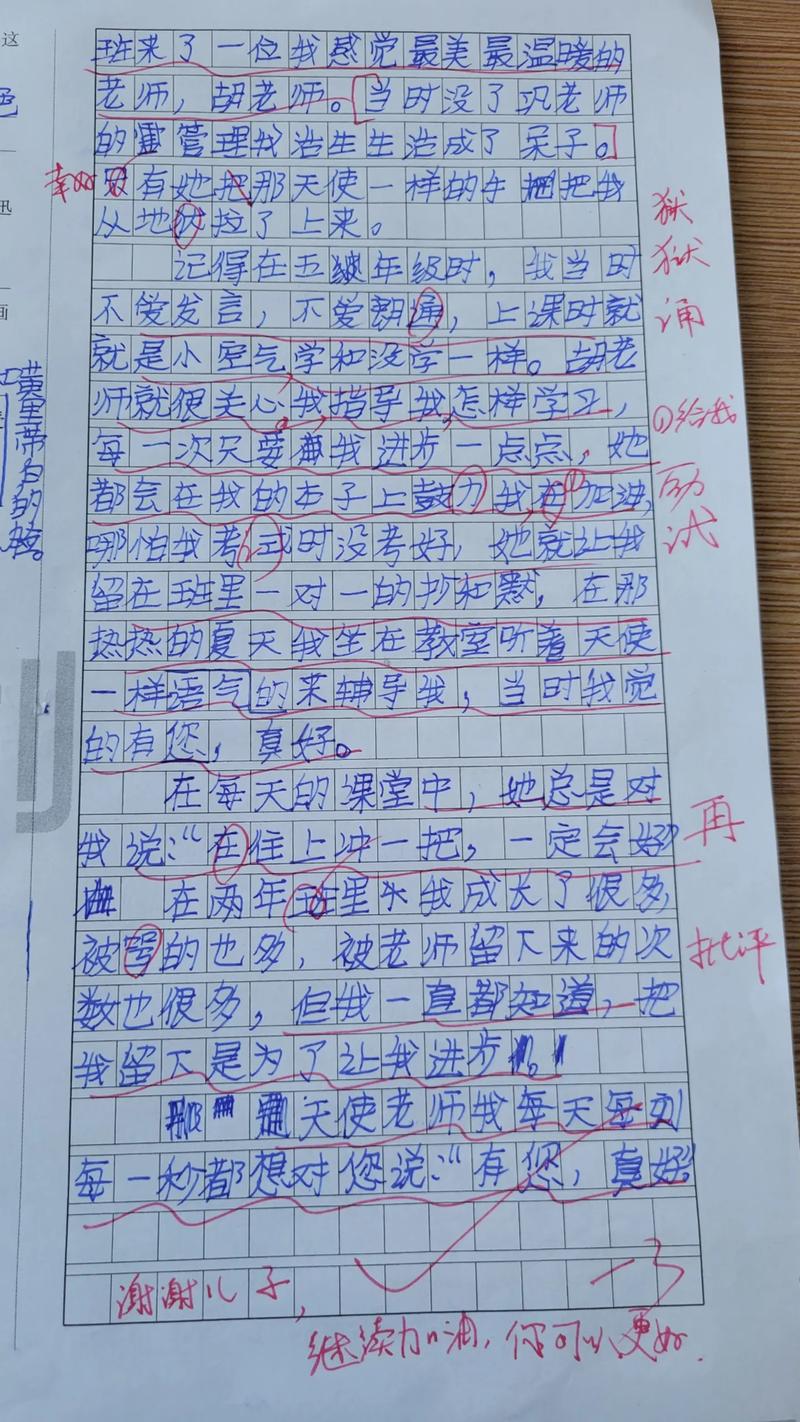 班来了一位我感觉最美最温暖的
老师，胡老师。当时没了巩老师
的管理我治生生治成了呆子。
幸好
只有她把那天使一样的手把把我
从地伏拉了上来。
狱
记得在五年级时，我当时
狱
不爱发言，不爱朗通，上课时就
诵
就是小空气学和没学一样。胡老
师就很关心我指导我怎样学习，
①给我
每一次只要我进步一点点，她
都会在我的本子上鼓力我在加油，
励
哪怕我考式时没考好，她就让我
试
留在班里一对一的抄和默，在那
热热的夏天我坐在教室听着天使
一样语气的来辅导我，当时我觉
的有您，真好。
在每天的课堂中，她总是对
我说：“在往上冲一把，一定会好”
再
在两年班里头我成长了很多，
被骂的也多，被老师留下来的次
批评
数也很多，但我一直都知道，把
我留下是为了让我进步。
天使老师我每天每刻
每一秒都想对您说：“有您，真好”
谢谢儿子，
继续加油，你可以更好.
黄
里
席
名
的
这
色
迅
画